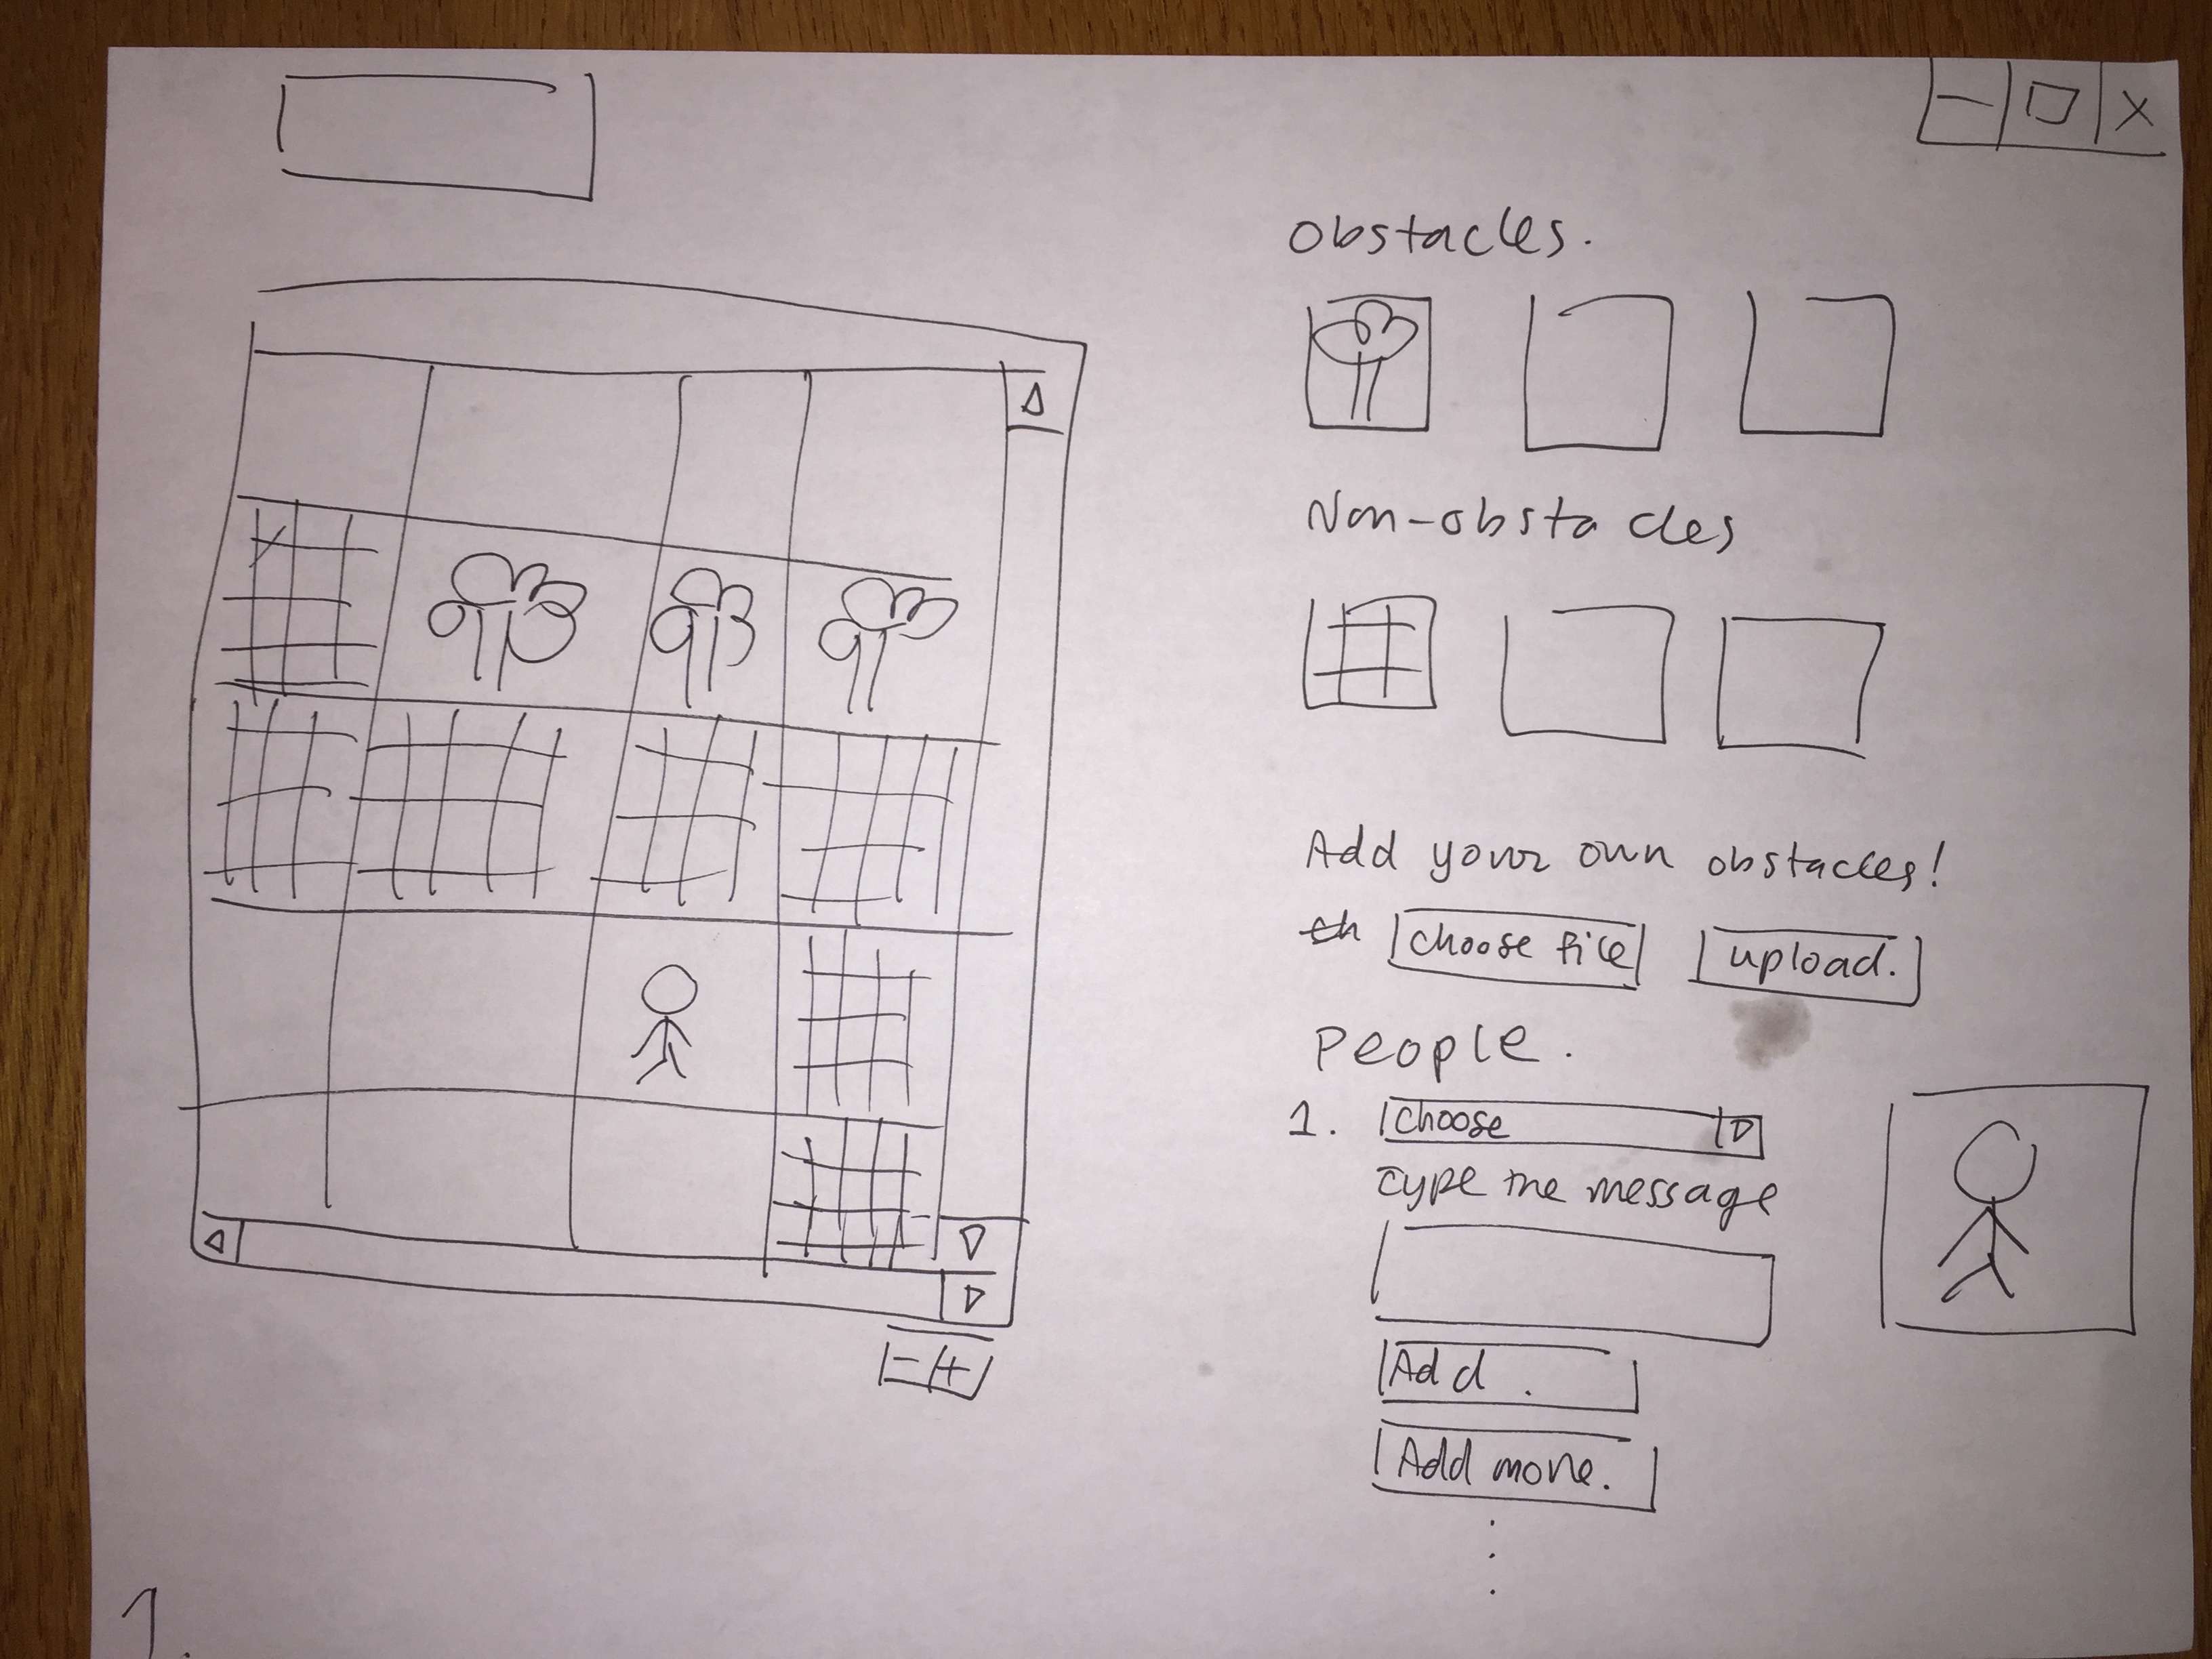 Obstacles.
Non-obstacles
Add your own obstacles!
ch choose file upload.
People.
1. choose
type the message
Add.
Add more.
1.